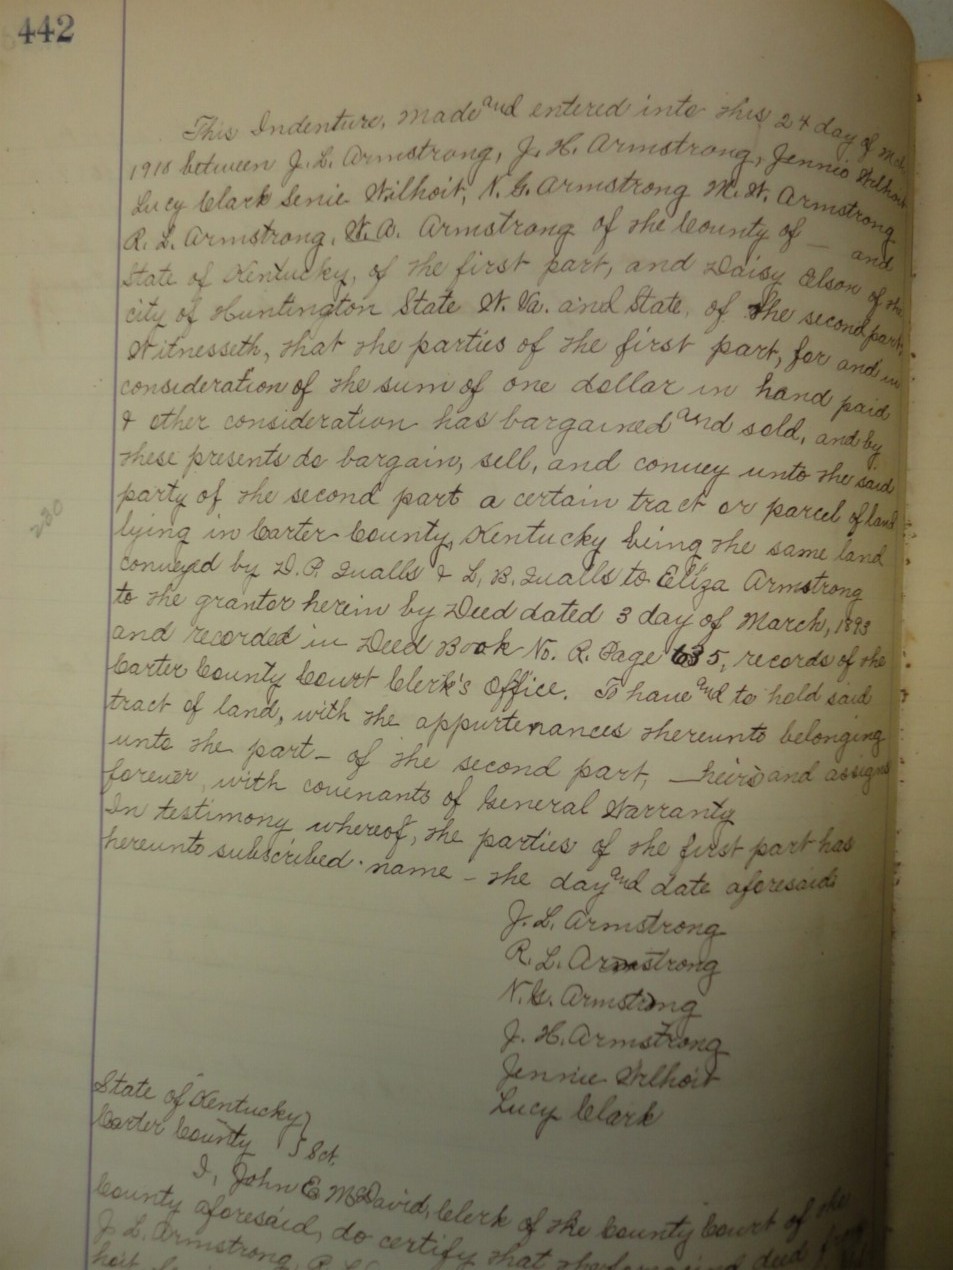 442
This Indenture, Made and entered into this 24 day of Mch
1918 between J. L. Armstrong, J. H. Armstrong, Jennie Wilhoit
Lucy Clark Senie Wilhoit, N. G. Armstrong M. W. Armstrong
R. L. Armstrong, W. A. Armstrong of the County of — and
State of Kentucky, of the first part, and Daisy Elson of the
city of Huntington State W. Va. and State of the second part,
Witnesseth, that the parties of the first part, for and in
consideration of the sum of one dollar in hand paid
& other consideration has bargained and sold, and by
these presents do bargain, sell, and convey unto the said
party of the second part a certain tract or parcel of land
230
lying in Carter County, Kentucky being the same land
conveyed by D. P. Qualls & L. B. Qualls to Eliza Armstrong
to the grantor herein by Deed dated 3 day of March, 1893
and recorded in Deed Book No. R. Page 635, records of the
Carter County Court Clerk's Office. To have and to hold said
tract of land, with the appurtenances thereunto belonging
unto the part— of the second part, — heirs and assigns
forever, with covenants of General Warranty
In testimony whereof, the parties of the first part has
hereunto subscribed . name — the day and date aforesaid.
J. L. Armstrong
R. L. Armstrong
N. G. Armstrong
J. H. Armstrong
Jennie Wilhoit
Lucy Clark
State of Kentucky }
Carter County } Sct.
I, John E McDavid, Clerk of the County Court of the
County aforesaid, do certify that the foregoing deed from
J. L. Armstrong, R. L.